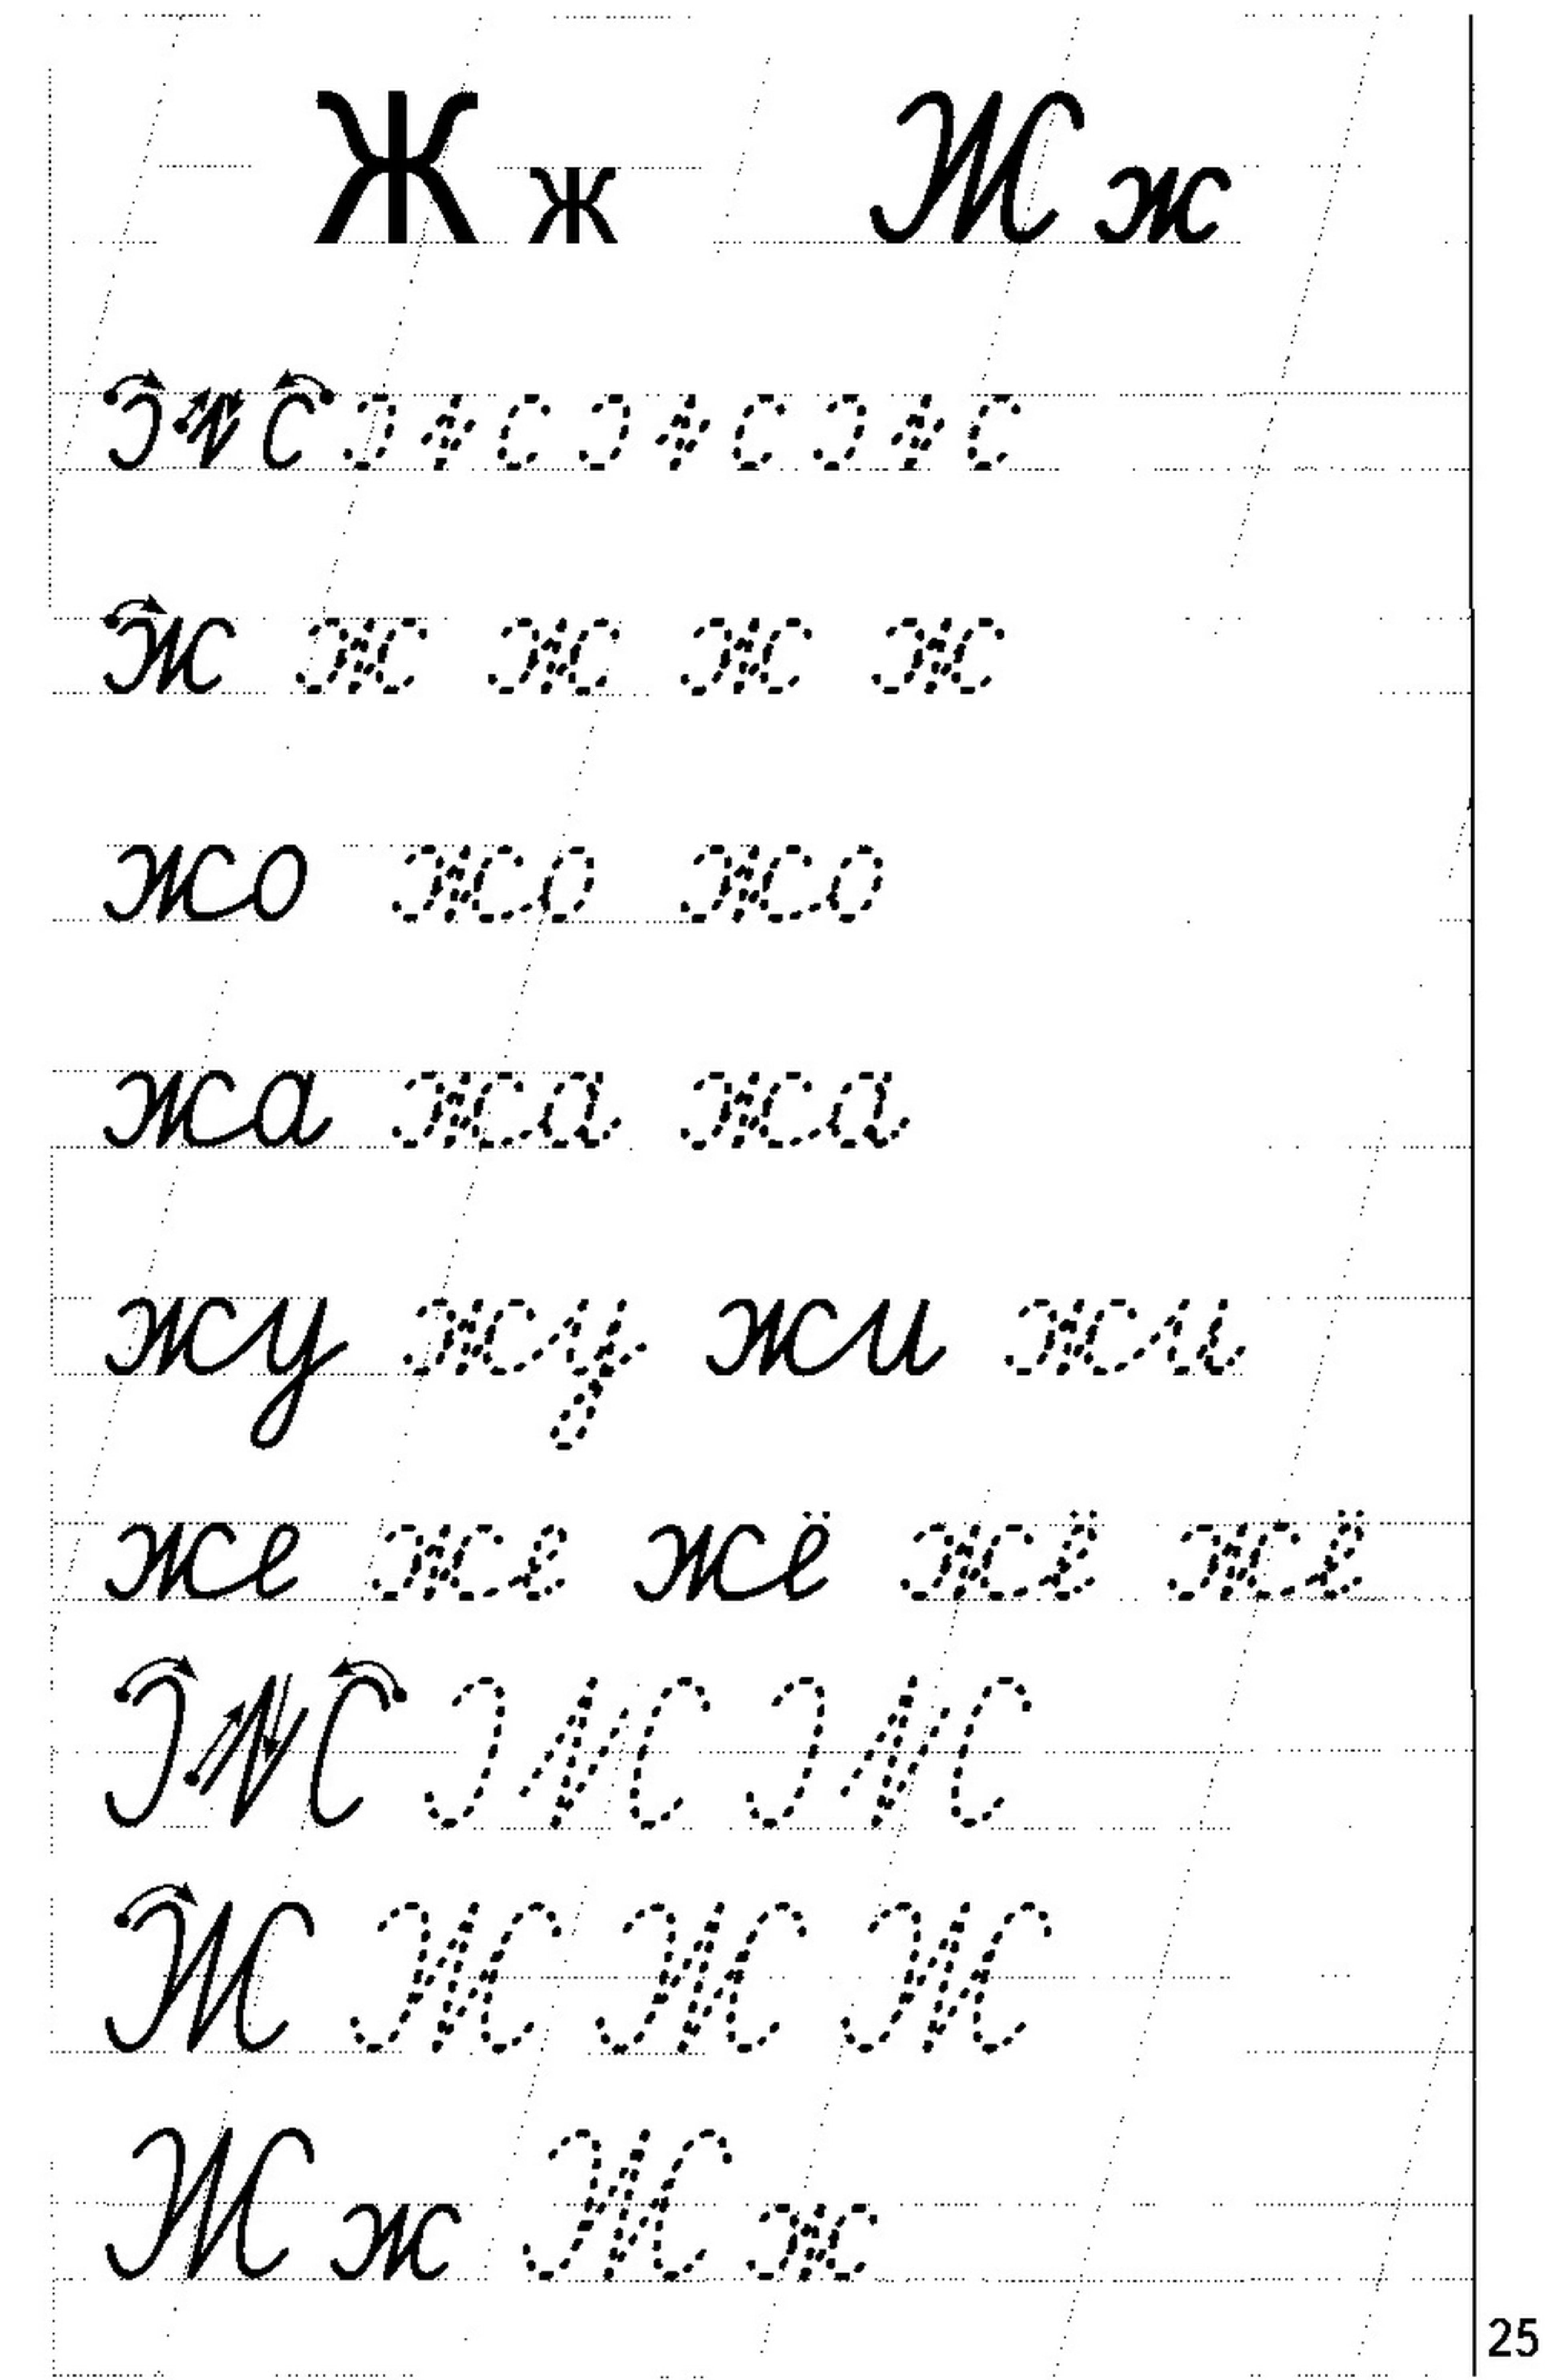 Ж ж Ж ж
ж ж ж ж ж
жо жо жо
жа жа жа
жу жу жи жи
же же жё жё жё
Ж Ж Ж Ж
Ж ж Ж ж
25